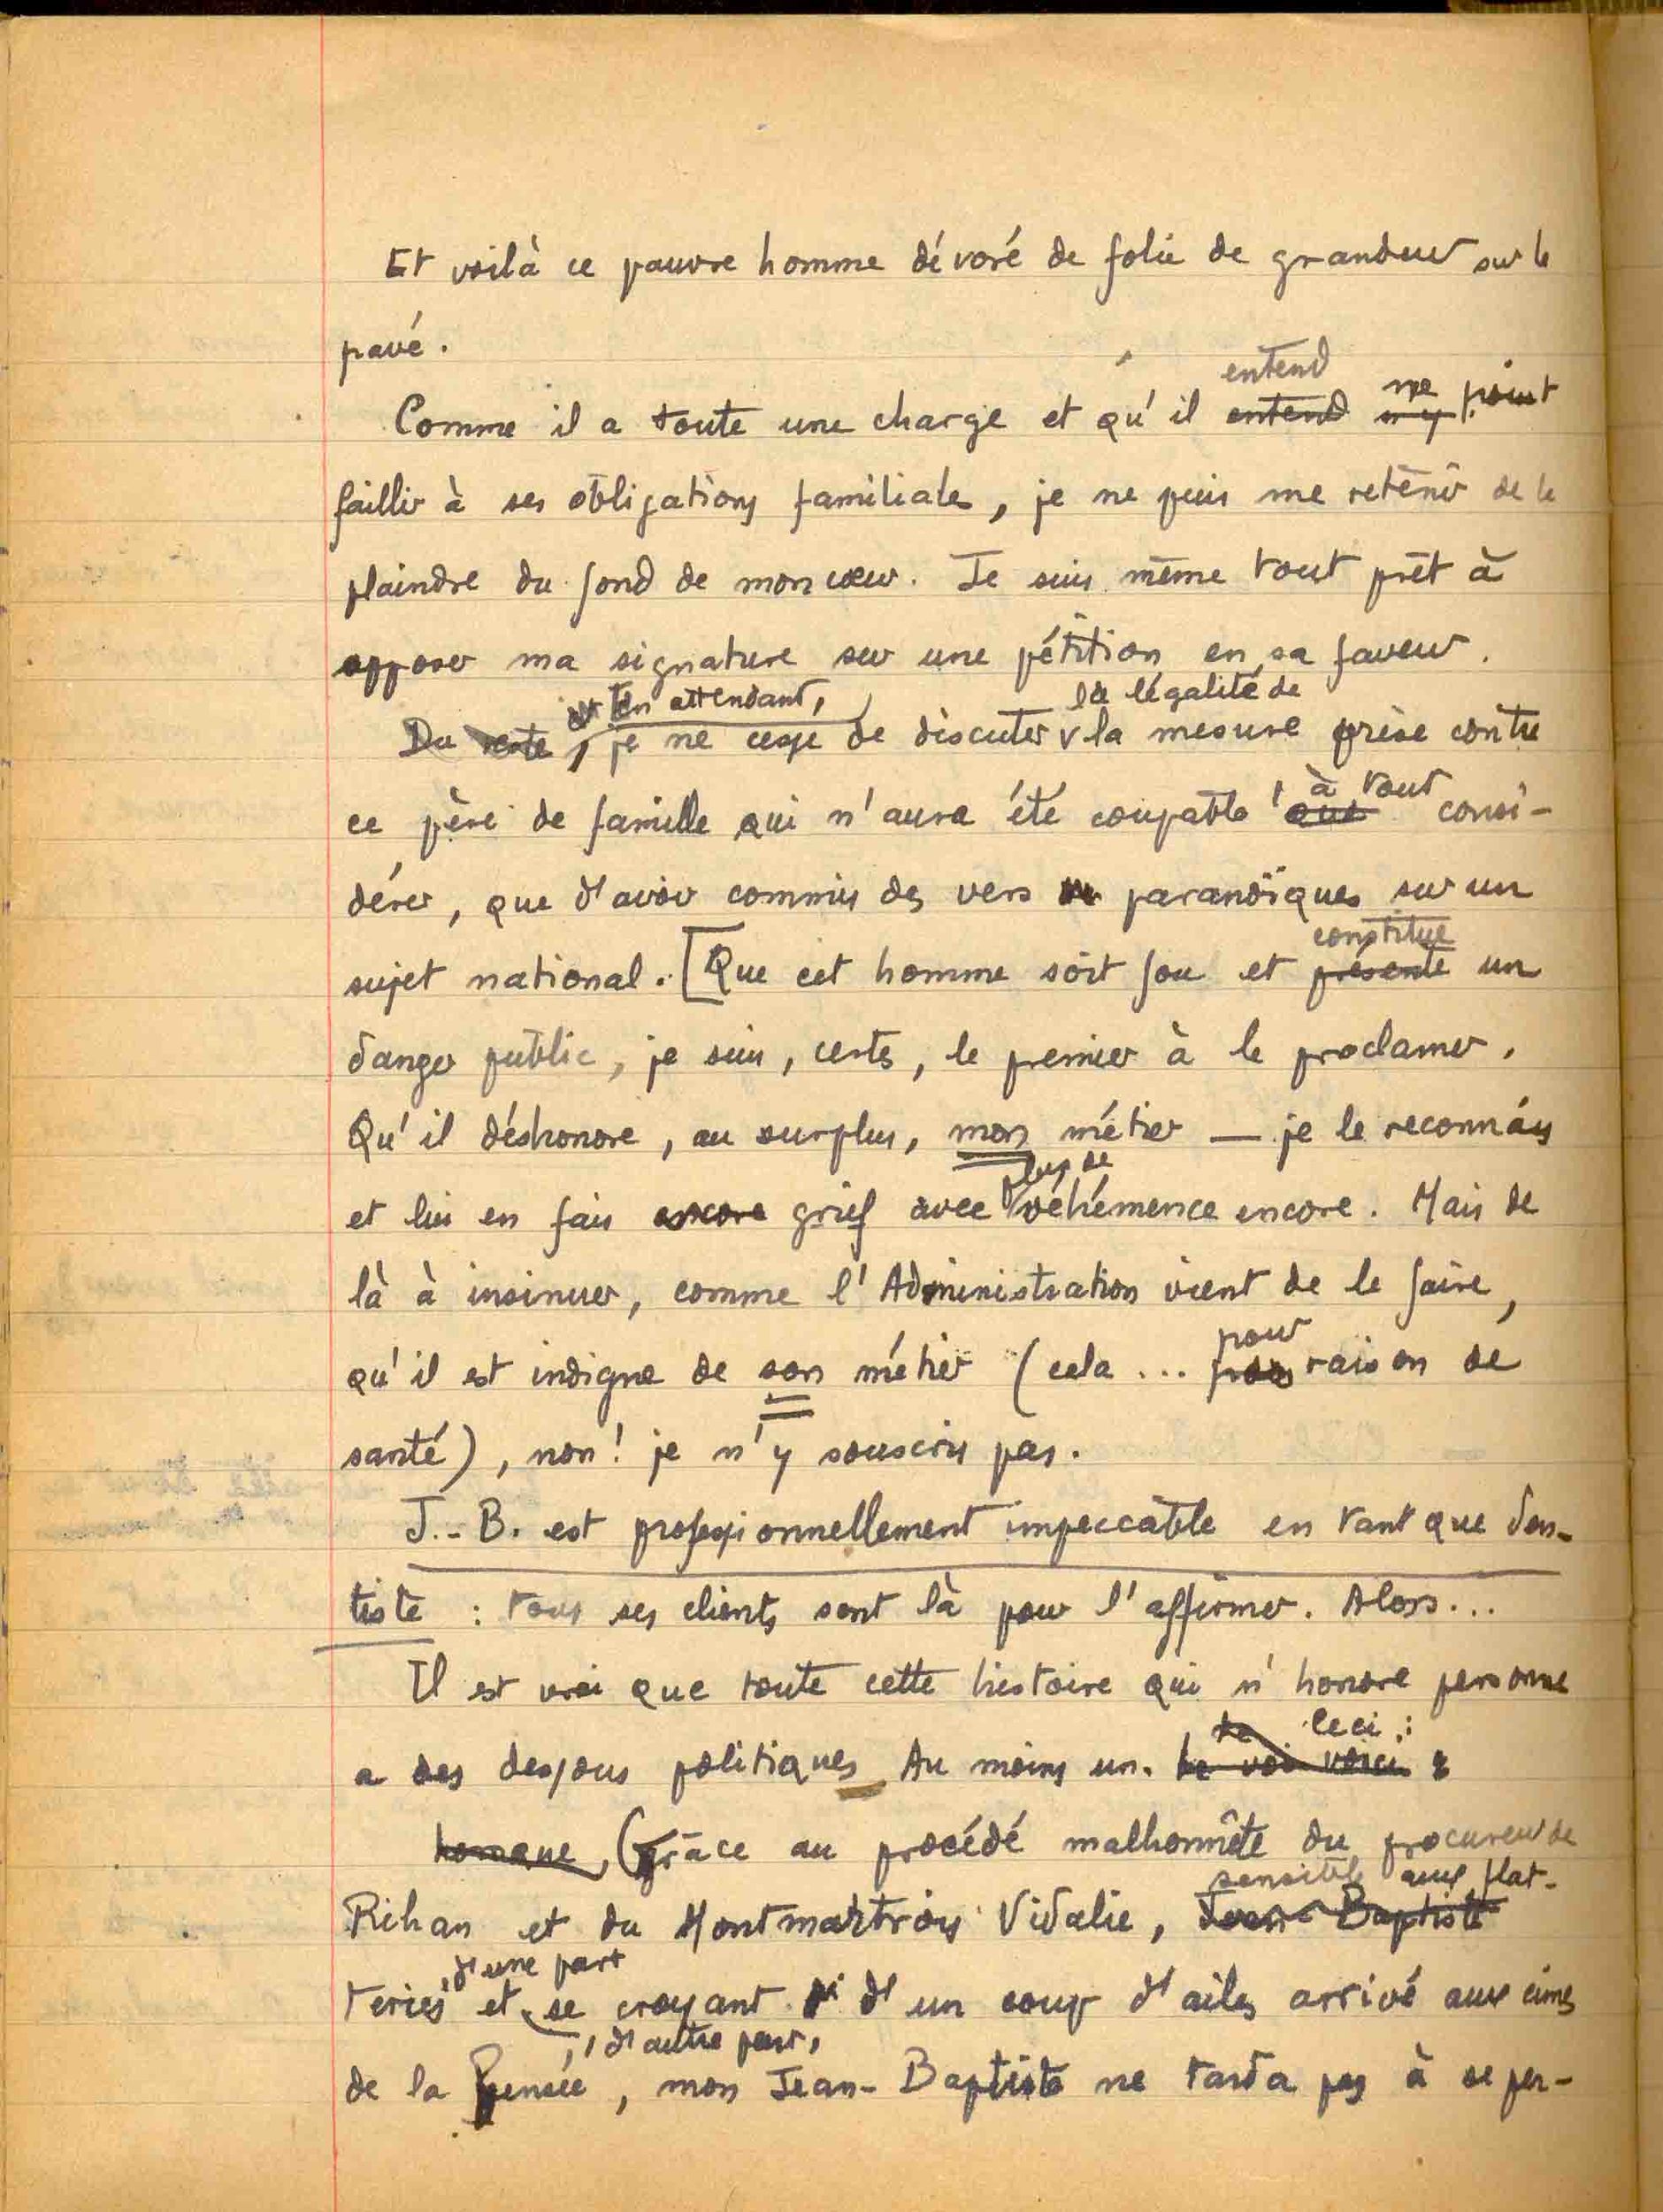 Et voilà ce pauvre homme dévoré de folie de grandeur sur le
pavé.
entend
Comme il a toute une charge et qu'il entend ne point
faillir à ses obligations familiales, je ne puis me retenir de le
plaindre du fond de mon cœur. Je suis même tout prêt à
apposer ma signature sur une pétition en sa faveur.
et En attendant, la légalité de
Du reste, je ne cesse de discuter la mesure prise contre
à tout
ce père de famille qui n'aura été coupable, que consi-
dérer, que d'avoir commis des vers paranoïques sur un
constitue
sujet national. [Que cet homme soit fou et présente un
danger public, je suis, certes, le premier à le proclamer.
Qu'il déshonore, au surplus, mon métier — je le reconnais
plus de
et lui en fais encore grief avec véhémence encore. Mais de
là à insinuer, comme l'Administration vient de le faire,
pour
qu'il est indigne de son métier (cela ... raison de
santé), non! je n'y souscris pas.
J.-B. est professionnellement impeccable en tant que den-
tiste : tous ses clients sont là pour l'affirmer. Alors...
Il est vrai que toute cette histoire qui n'honore personne
Ceci :
a des dessous politiques. Au moins un. Le voi voici :
(Grâce au procédé malhonnête du procureur de
sensible aux flat-
Rihan et du Montmartrois Vidalie, Jean-Baptiste
d'une part
teries et se croyant d'un coup d'ailes arrivé aux cimes
, d'autre part,
de la Pensée, mon Jean-Baptiste ne tarda pas à se per-